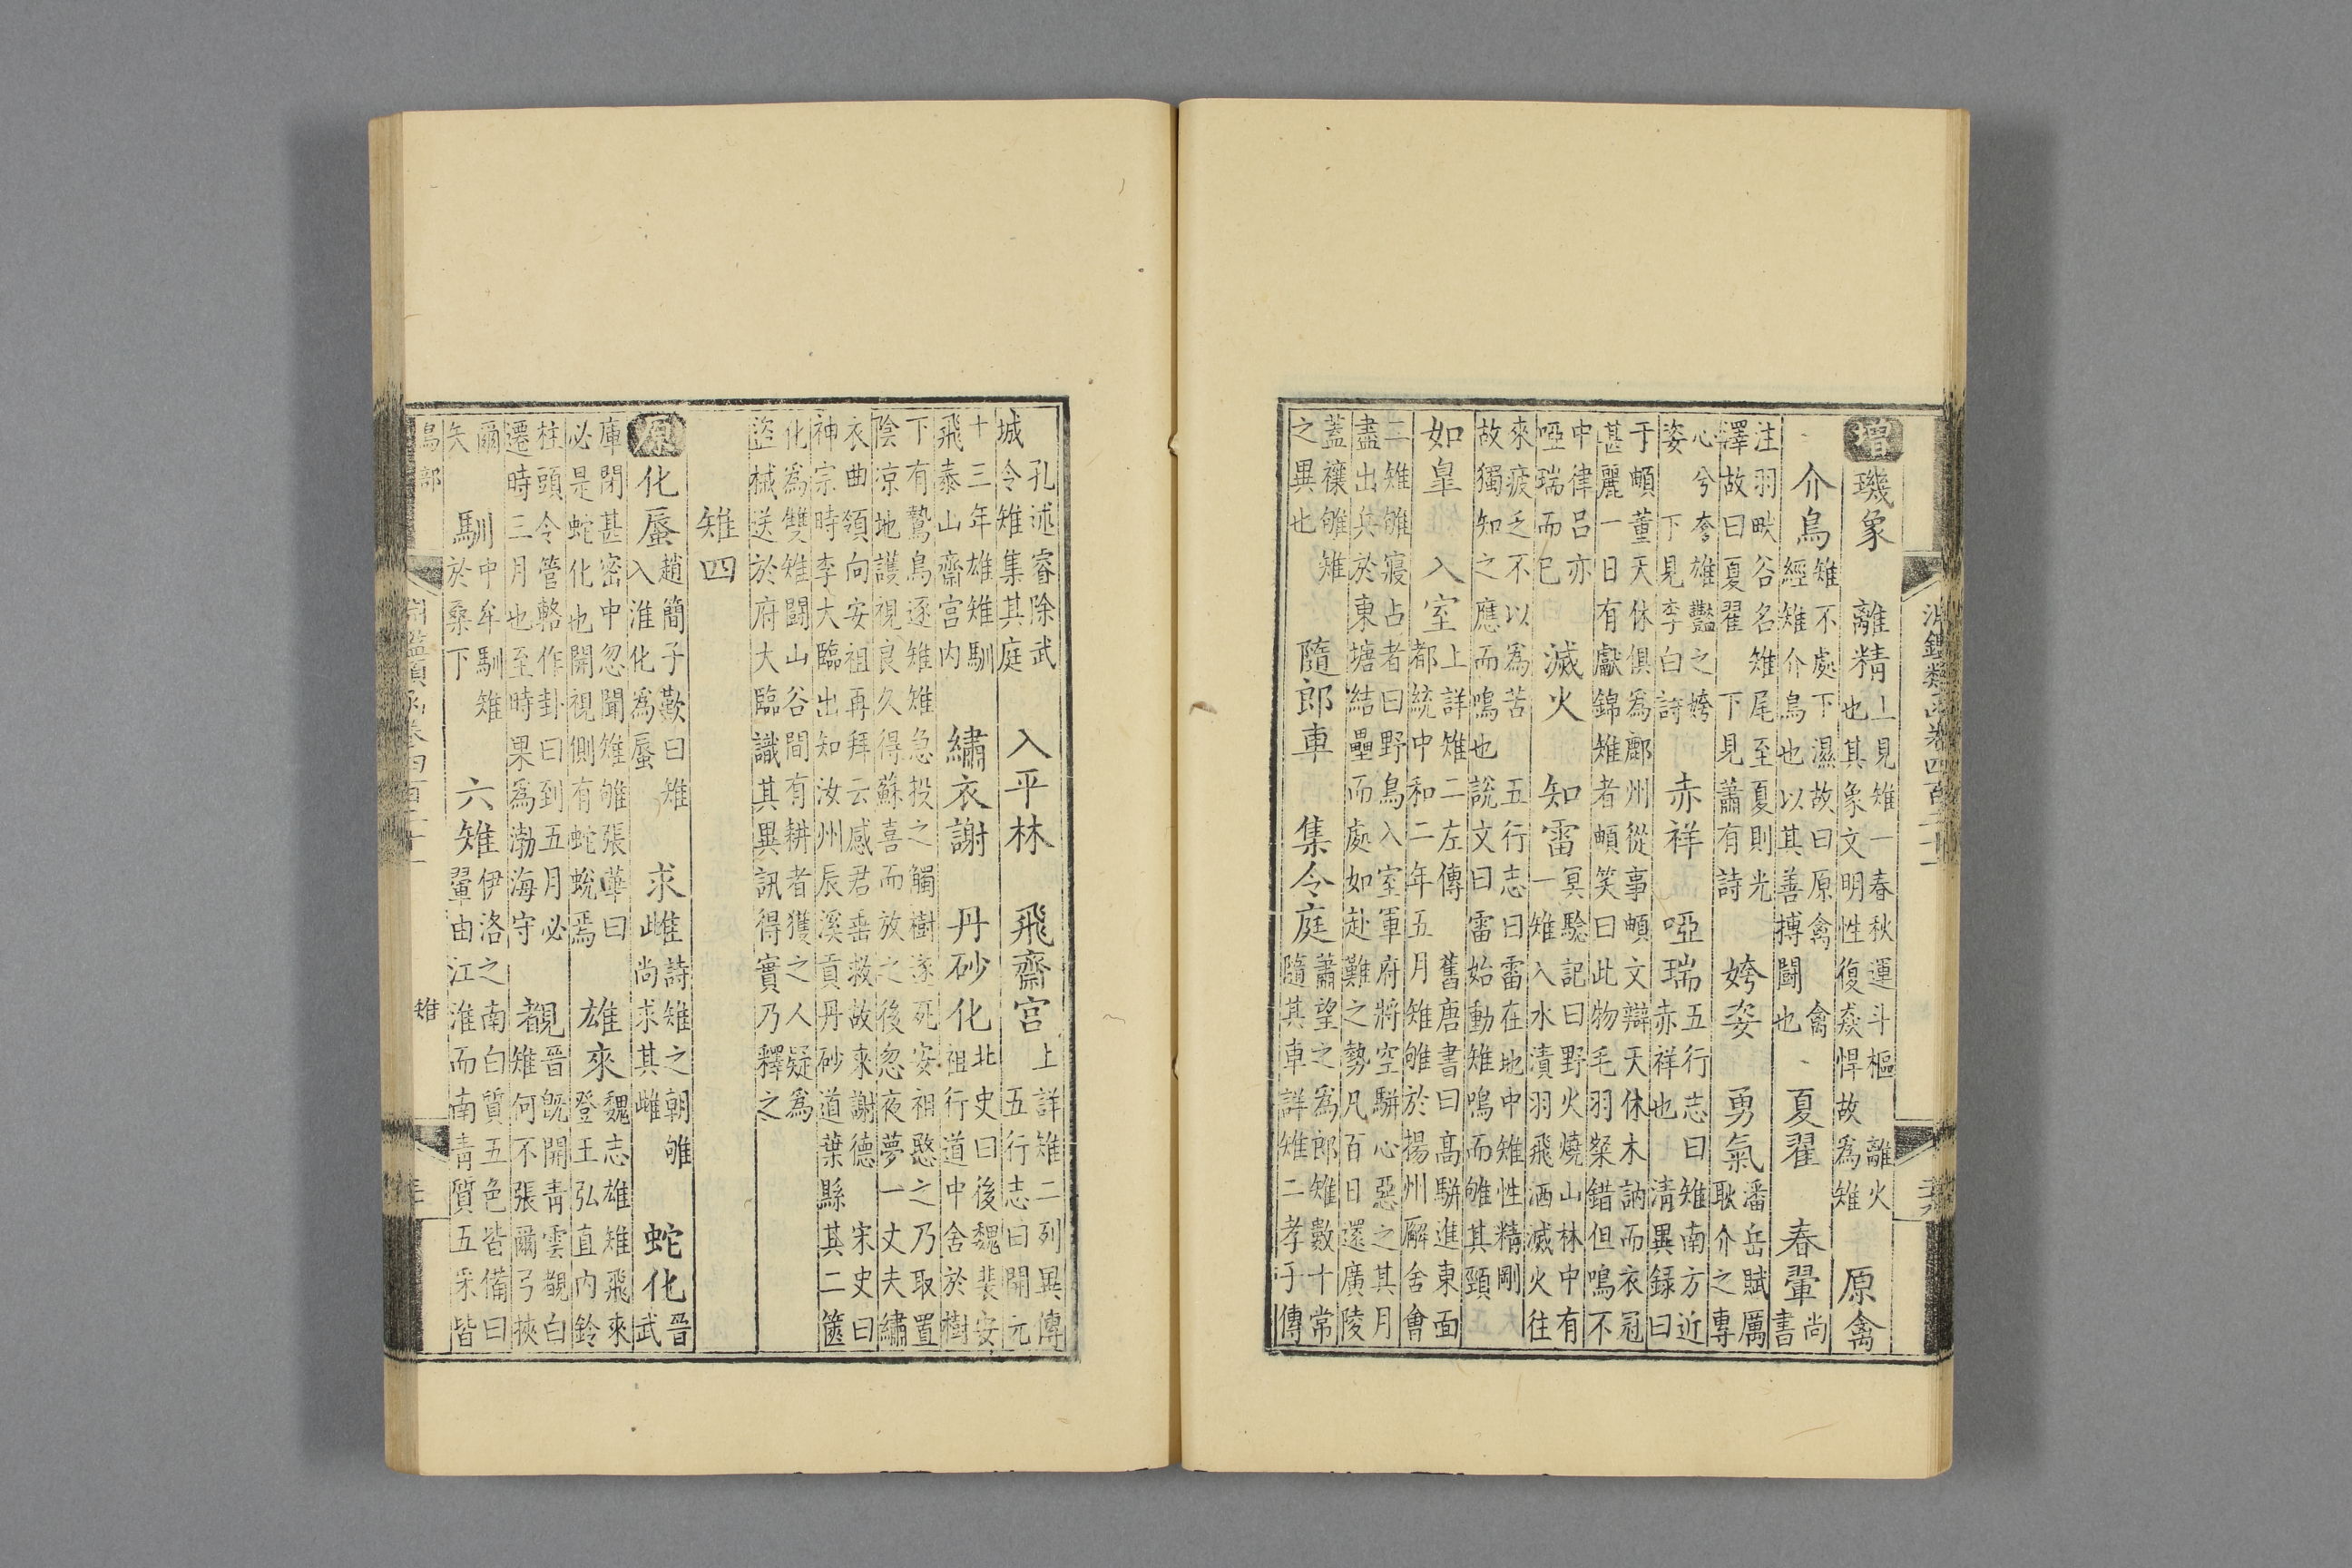 增璣象　離精
上見雉一春秋運斗樞　離火
也其象文明性復猋悍故為雉
原禽
介鳥
雉不處下濕故曰原禽　禽
經雉介鳥也以其善搏鬪也
夏翟　春翬
尚
書
注羽畎谷名雉尾至夏則光
澤故曰夏翟　下見蕭有詩
姱姿　勇氣
潘岳賦厲
耿介之專
心兮夸雄豔之姱
姿　下見李白詩
赤祥　啞瑞
五行志曰雉南方近
赤祥也　清異録曰
于頔董天休俱為鄜州從事頔文辯天休木訥而衣冠
甚麗一日有獻錦雉者頔笑曰此物毛羽粲錯但鳴不
中律呂亦
啞瑞而已
滅火　知雷
冥騐記曰野火燒山林中有
一雉入水漬羽飛洒滅火往
來疲乏不以為苦　五行志曰雷在地中雉性精剛
故獨知之應而鳴也　說文曰雷始動雉鳴而雊其頸
如皐　入室
上詳雉二左傳　舊唐書曰高駢進東面
都統中和二年五月雉雊於揚州廨舍會
二雉雊寢占者曰野鳥入室軍府將空駢心惡之其月
盡出兵於東塘結壘而處如赴難之勢凡百日還廣陵
蓋禳雊雉
之異也
隨郎車　集令庭
蕭望之為郎雉數十常
隨其車詳雉二孝子傳
孔述睿除武
城令雉集其庭
入平林　飛齋宫
上詳雉二列異傳
五行志曰開元
十三年雄雉馴
飛泰山齋宫内
繡衣謝　丹砂化
北史曰後魏裴安
祖行道中舍於樹
下有鷙鳥逐雉雉急投之觸樹遂死安祖愍之乃取置
陰涼地護視良久得蘇喜而放之後忽夜夢一丈夫繡
衣曲領向安祖再拜云感君垂救故來謝德　宋史曰
神宗時李大臨出知汝州辰溪貢丹砂道葉縣其二篋
化為雙雉鬪山谷間有耕者獲之人疑為
盜械送於府大臨識其異訊得實乃釋之
雉四
原化蜃
趙簡子歎曰雉
入淮化為蜃
求雌
詩雉之朝雊
尚求其雌
蛇化
晉
武
庫閉甚密中忽聞雉雊張華曰
必是蛇化也開視側有蛇蛻焉
雄來
魏志雄雉飛來
登王弘直内鈴
柱頭令管輅作卦曰到五月必
遷時三月也至時果為渤海守
覩
晉旣開青雲覩白
雉何不張爾弓挾
爾
矢
馴
中牟馴雉
於桑下
六雉
伊洛之南白質五色皆備曰
翬由江淮而南青質五采皆
鳥部
雉